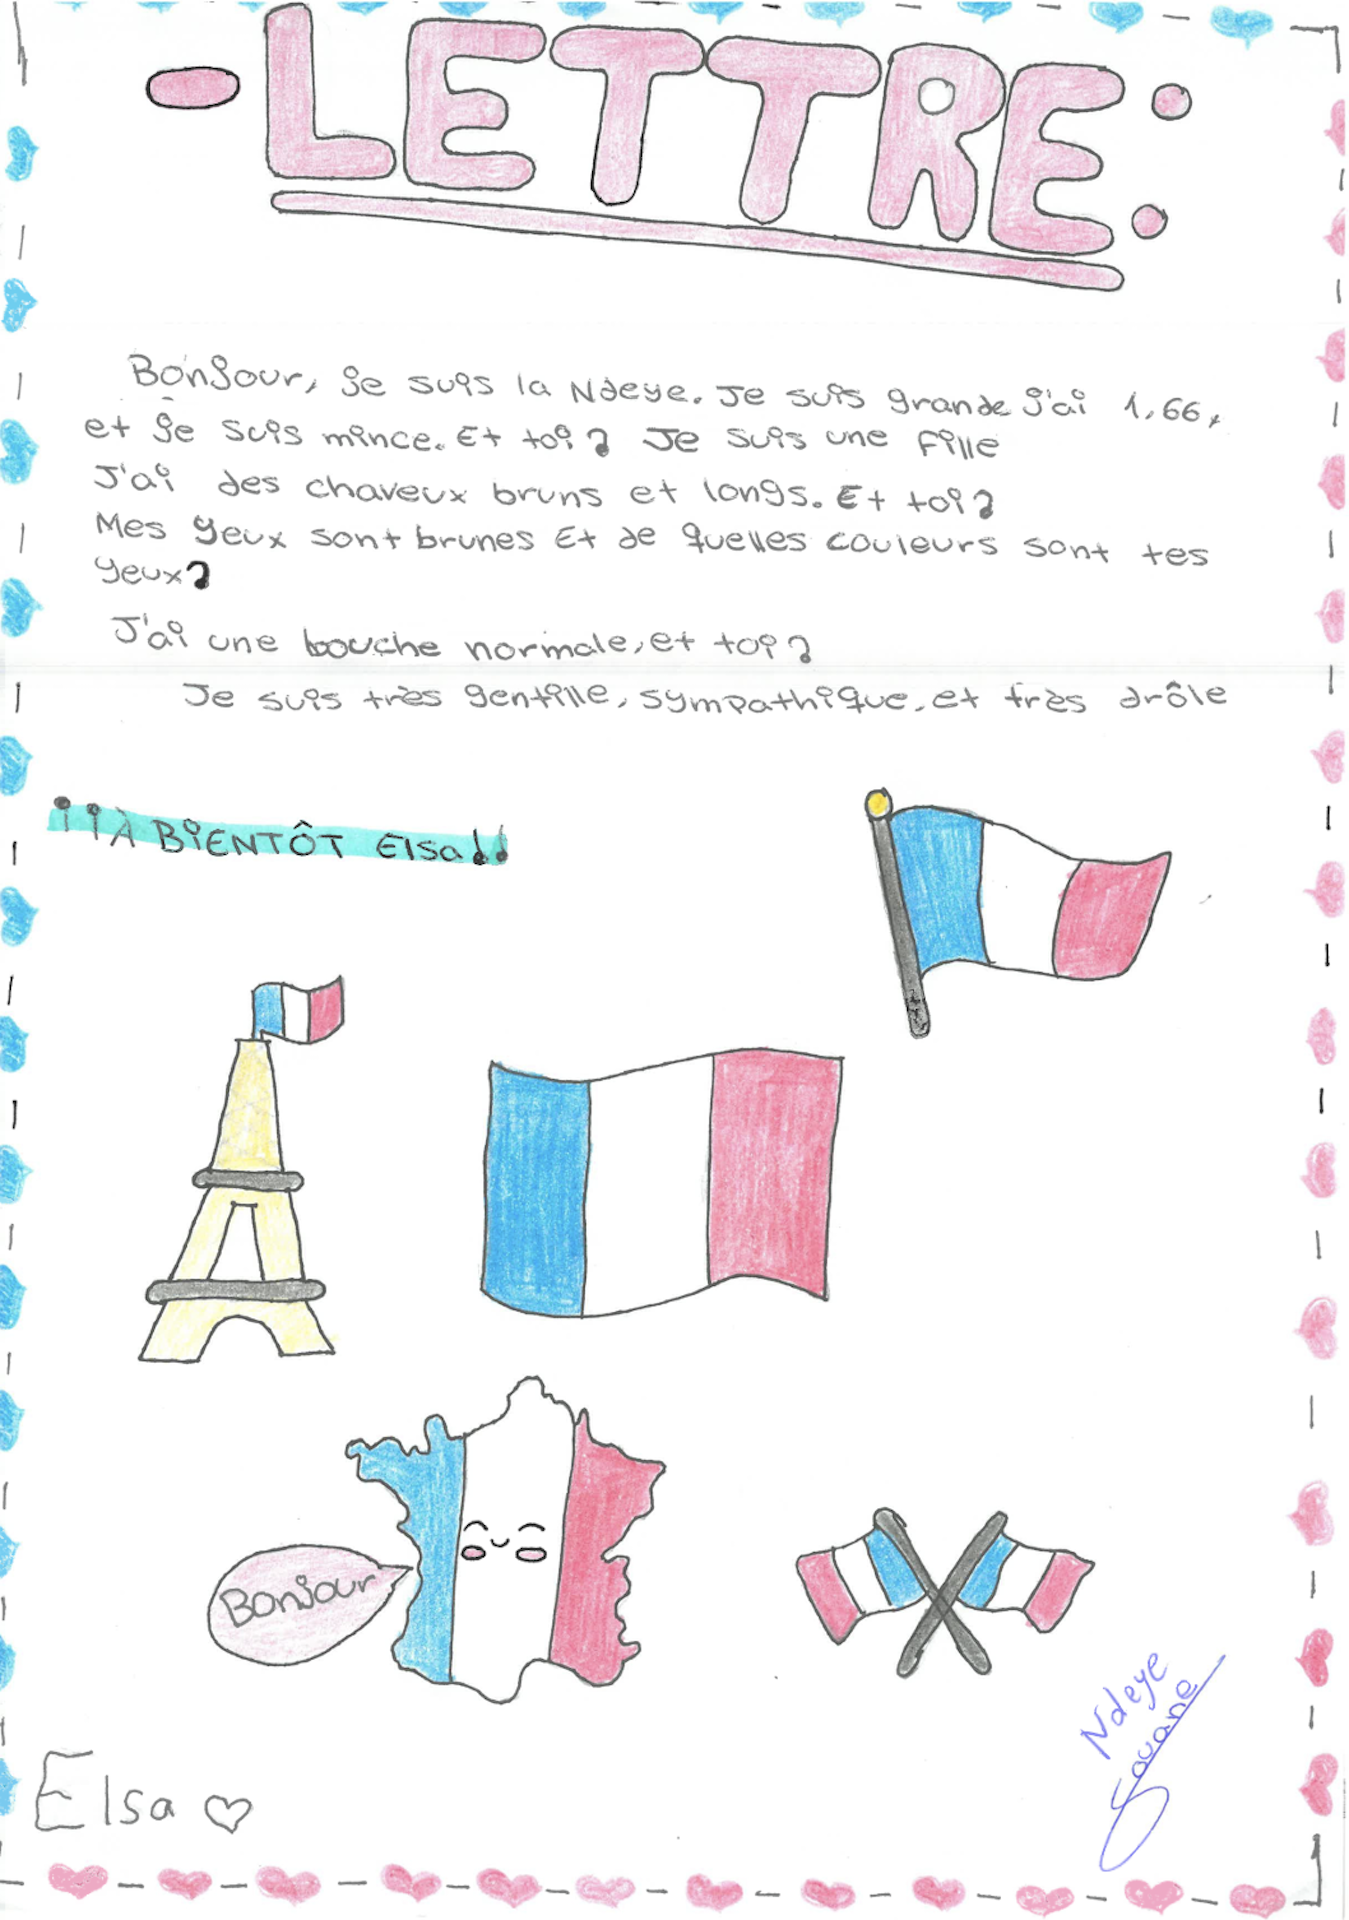 -LETTRE:
Bonjour, je suis la Ndeye. Je suis grande j'ai 1,66,
et je suis mince. Et toi? Je suis une fille
J'ai des chaveux bruns et longs. Et toi?
Mes yeux sont brunes Et de quelles couleurs sont tes
yeux?
J'ai une bouche normale, et toi?
Je suis très gentille, sympathique, et très drôle
¡¡À BIENTÔT Elsa!!
Bonjour
Ndeye
Souane
Elsa ♡